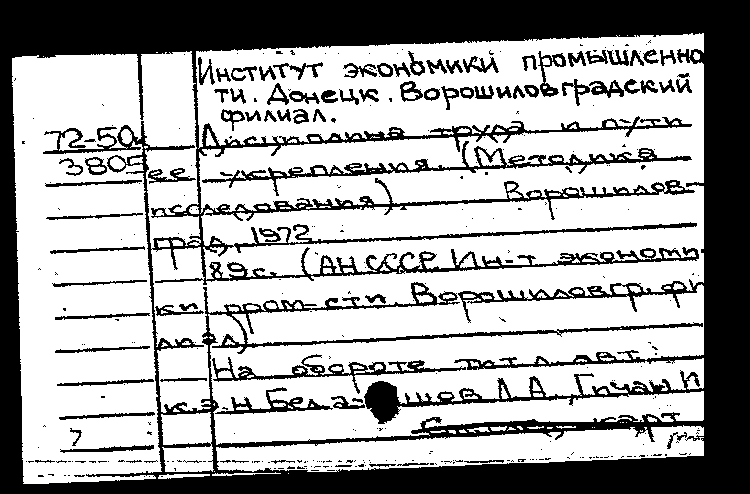 Институт экономики промышленно
ти. Донецк. Ворошиловградский
филиал.
72-50
Дисциплина труда и пути
3805
ее укрепления. (Методика
исследования). Ворошилов-
град, 1972
89с. (АН СССР Ин-т экономи-
ки пром-сти. Ворошиловгр. фи
лиал)
На обороте тит. л. авт.:
к.э.н. Л.А., Гичан И
7